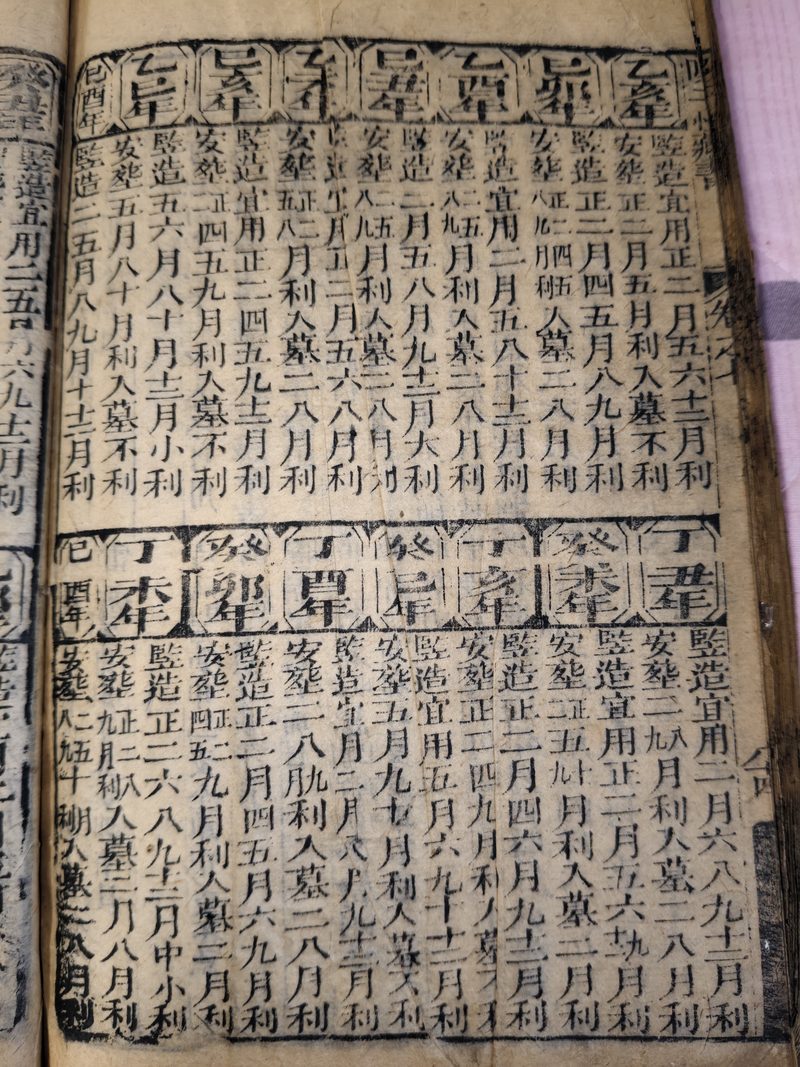 乙亥年
竪造宜用正二月五六十二月利
安葬正二月五月利入墓不利
己卯年
竪造正二月四五月八九月利
安葬正二四五八九月利入墓二八月利
乙酉年
竪造宜用二月五八十十二月利
安葬二五八九月利入墓二八月利
己丑年
竪造二月五八月九十二月大利
安葬二五八九月利入墓二八月利
乙未年
造宜月正二月五六八月利
安葬正二五八月利入墓二八月利
己亥年
竪造宜用正二四五九十二月利
安葬正二四五九月利入墓不利
乙巳年
竪造五六月八十月十二月小利
安葬五月八十月利入墓不利
己酉年
竪造二五月八九月十十二月利
丁丑年
竪造宜用二月六八九十二月利
安葬二八九月利入墓二八月利
癸未年
竪造宜用正二月五六九十二月利
安葬正二五九十月利入墓二月利
丁亥年
竪造正二月四六月九十二月利
安葬正二四九月利入墓不利
癸巳年
竪造宜用五月六九十十二月利
安葬五月九十月利入墓不利
丁酉年
竪造宜月二月八月九十二月利
安葬二八九月利入墓二八月利
癸卯年
竪造正二月四五月六九月利
安葬正二四五九月利入墓二月利
丁未年
竪造正二六八九十二月中小利
安葬正二八九月利入墓二月八月利
己酉年
安葬二五八九十月利入墓二八月利
癸丑年
竪造宜用二五月六九十二月利